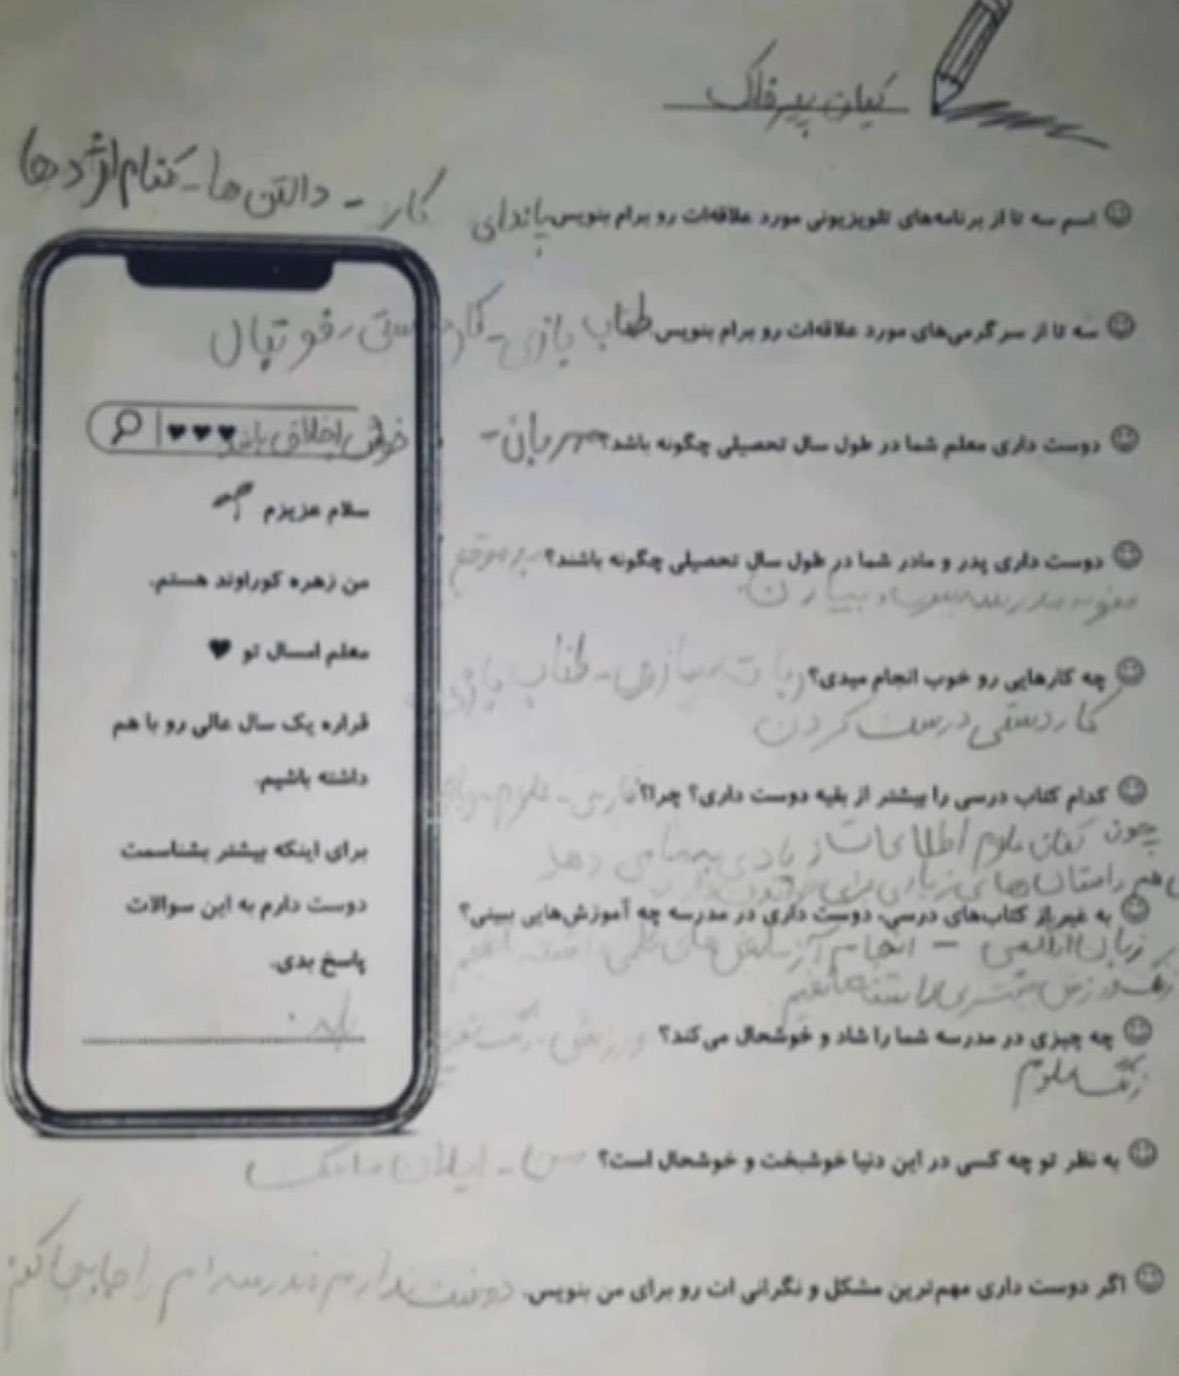 کیان پیرفلک
اسم سه تا از برنامه‌های تلویزیونی مورد علاقه‌ات رو برام بنویس. پاندای کار - دالتن ها - کتنام اژدها
سه تا از سرگرمی‌های مورد علاقه‌ات رو برام بنویس. طناب بازی - کاردستی - فوتبال
دوست داری معلم شما در طول سال تحصیلی چگونه باشد؟ مهربان -
خوش اخلاق باشد ♥♥♥
دوست داری پدر و مادر شما در طول سال تحصیلی چگونه باشند؟ به موقع
منو به مدرسه ببرند و بیارن.
چه کارهایی رو خوب انجام میدی؟ ربات سازی - طناب بازی
کاردستی درست کردن
کدام کتاب درسی را بیشتر از بقیه دوست داری؟ چرا؟ فارسی - علوم -
چون کتاب علوم اطلاعات زیادی به ما می دهد
داستان های زیادی برای
به غیر از کتاب‌های درسی، دوست داری در مدرسه چه آموزش‌هایی ببینی؟
زبان - انجام آزمایش های علمی داشته باشیم
ورزش بیشتری داشته باشیم
چه چیزی در مدرسه شما را شاد و خوشحال می‌کند؟ ورزش - زنگ تفریح
زنگ علوم
به نظر تو چه کسی در این دنیا خوشبخت و خوشحال است؟ من - ایلان ماسک
اگر دوست داری مهم‌ترین مشکل و نگرانی ات رو برای من بنویس. دوست ندارم مدرسه ام را جابجا کنم
سلام عزیزم
من زهره کوراوند هستم.
معلم امسال تو ♥
قراره یک سال عالی رو با هم
داشته باشیم.
برای اینکه بیشتر بشناسمت
دوست دارم به این سوالات
پاسخ بدی.